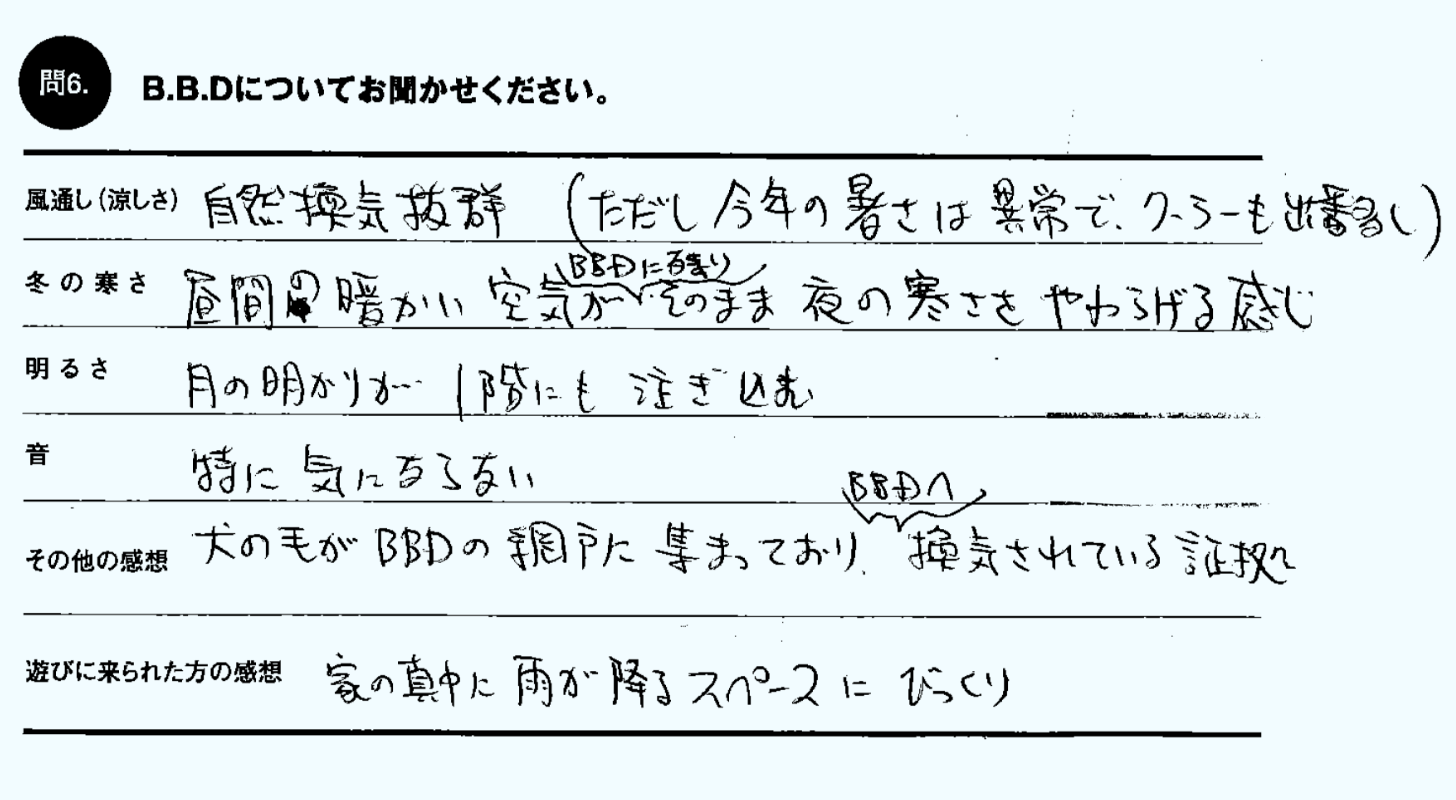 問6. B.B.Dについてお聞かせください。
風通し(涼しさ) 自然換気抜群 (ただし今年の暑さは異常で、クーラーも出番多し)
BBDに残り
冬の寒さ 昼間の暖かい空気がそのまま夜の寒さをやわらげる感じ
明るさ 月の明かりが1階にも注ぎ込む
音 特に気にならない
BBDへ
その他の感想 犬の毛がBBDの網戸に集まっており、換気されている証拠
遊びに来られた方の感想 家の真中に雨が降るスペースにびっくり